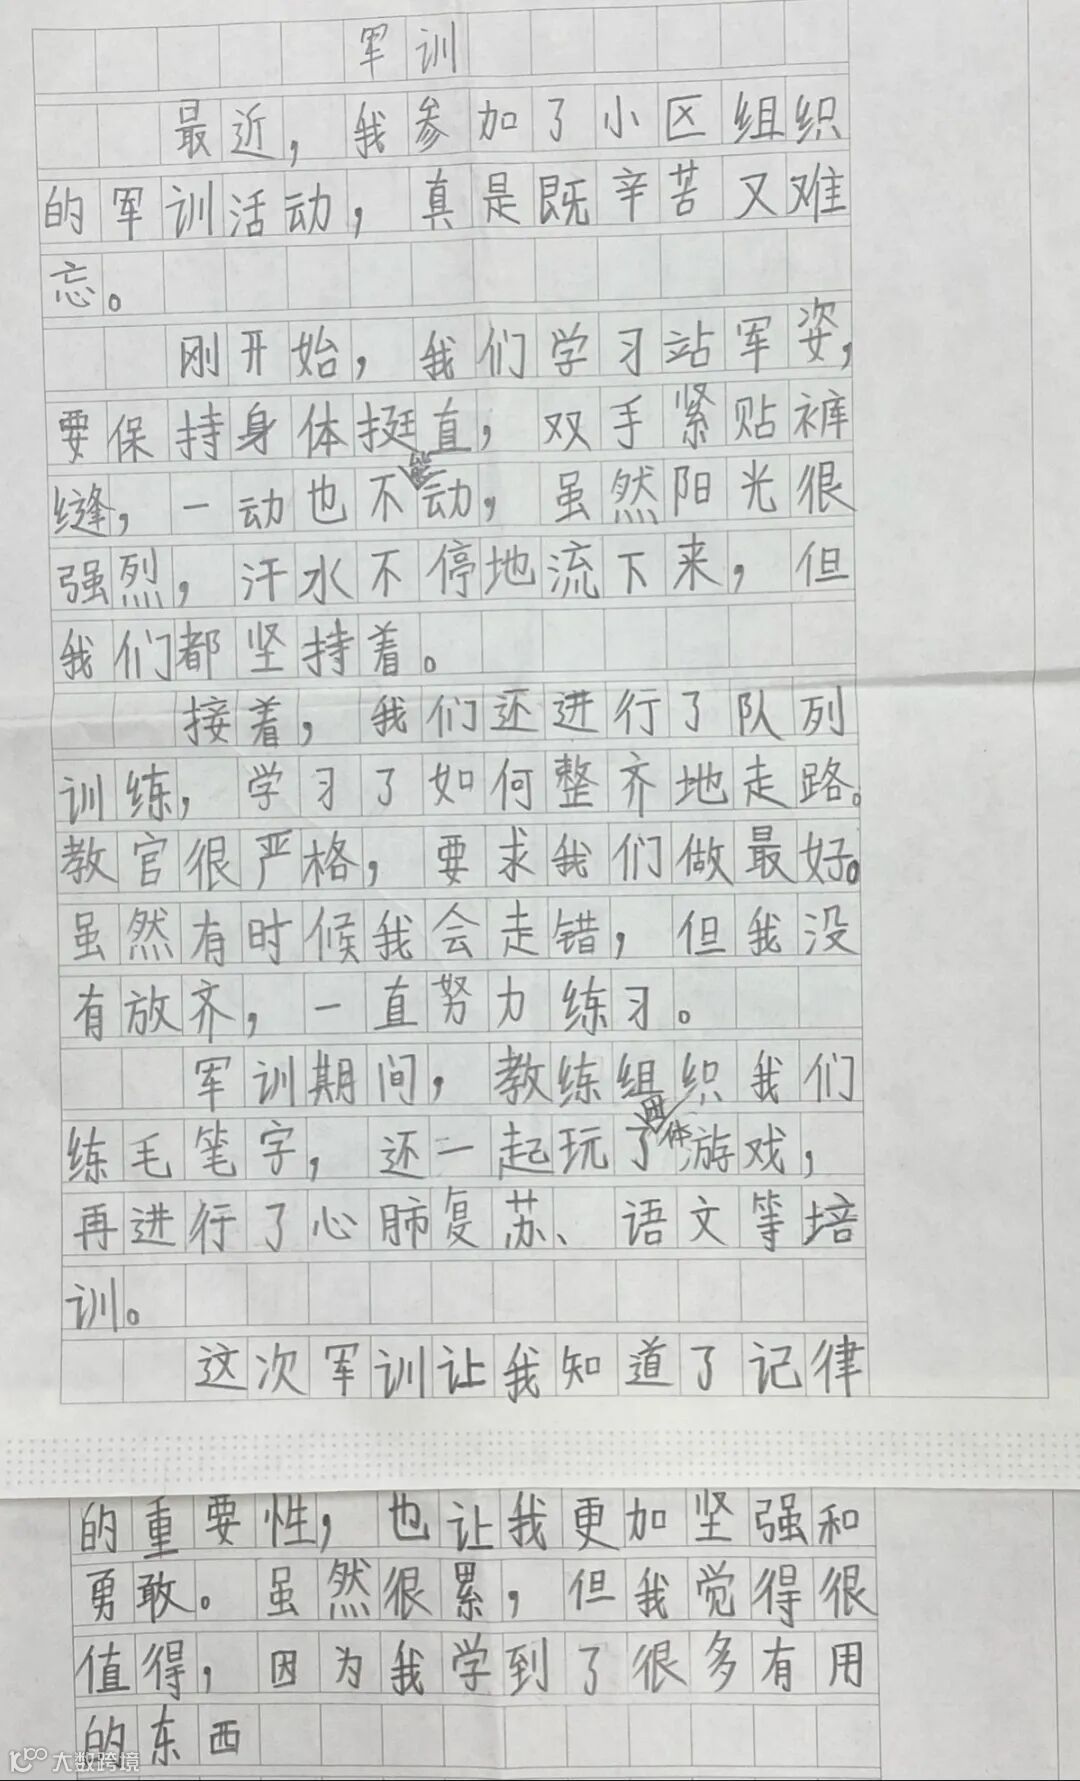 军训
最近，我参加了小区组织
的军训活动，真是既辛苦又难
忘。
刚开始，我们学习站军姿，
要保持身体挺直，双手紧贴裤
缝，一动也不能动，虽然阳光很
强烈，汗水不停地流下来，但
我们都坚持着。
接着，我们还进行了队列
训练，学习了如何整齐地走路。
教官很严格，要求我们做最好。
虽然有时候我会走错，但我没
有放齐，一直努力练习。
军训期间，教练组织我们
练毛笔字，还一起玩了团体游戏，
再进行了心肺复苏、语文等培
训。
这次军训让我知道了记律
的重要性，也让我更加坚强和
勇敢。虽然很累，但我觉得很
值得，因为我学到了很多有用
的东西
大数跨境